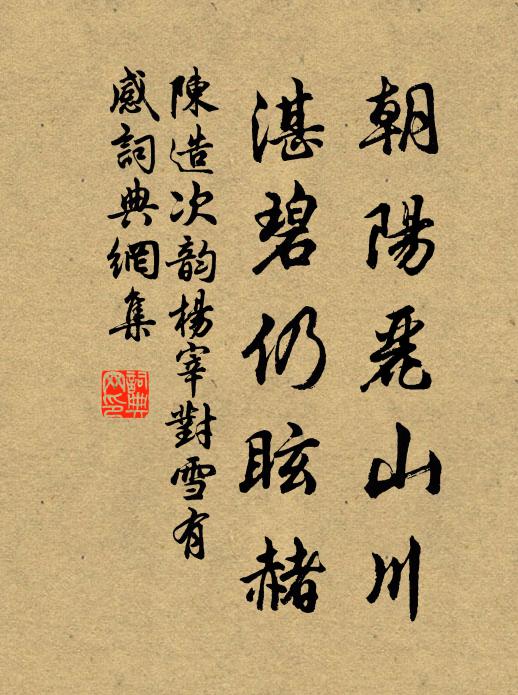 朝陽麗山川
湛碧仍眩赭
陳造次韵楊宰對雪有
感詞典網集
詞典
网印